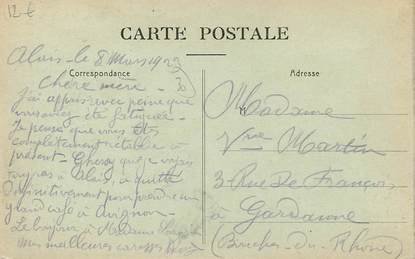 12€
CARTE POSTALE
Alais - le 8 Mars 1923
Correspondance
Adresse
Chère mère -
J'ai appris avec peine que
vous avez été fatiguée -
Je pense que vous êtes
complètement rétablie à
présent -
à Alais, a quitté
définitivement pour prendre un
grand café à Avignon -
Le bonjour à Madame
mes meilleures caresses
Madame
Vve Martin
3 Rue De François
à Gardanne
(Bouches-du-Rhône)